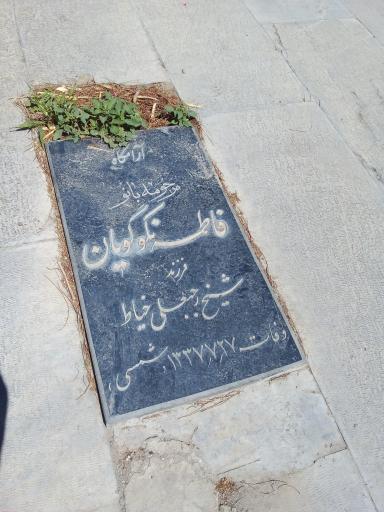 آرامگاه
مرحومه بانو
فاطمه نکوگویان
فرزند
شیخ رجبعلی خیاط
وفات ۱۳۳۷٫۷٫۲۷ شمسی